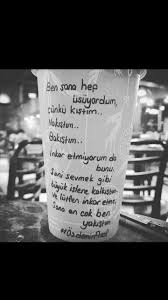 Ben sana hep
üşüyordum,
çünkü kıştım..
Nakıştım..
Bakıştım..
İnkar etmiyorum da
bunu.
Seni sevmek gibi
büyük işlere kalkıştım.
Ve lütfen inkar etme,
Sana en çok ben
yakıştım